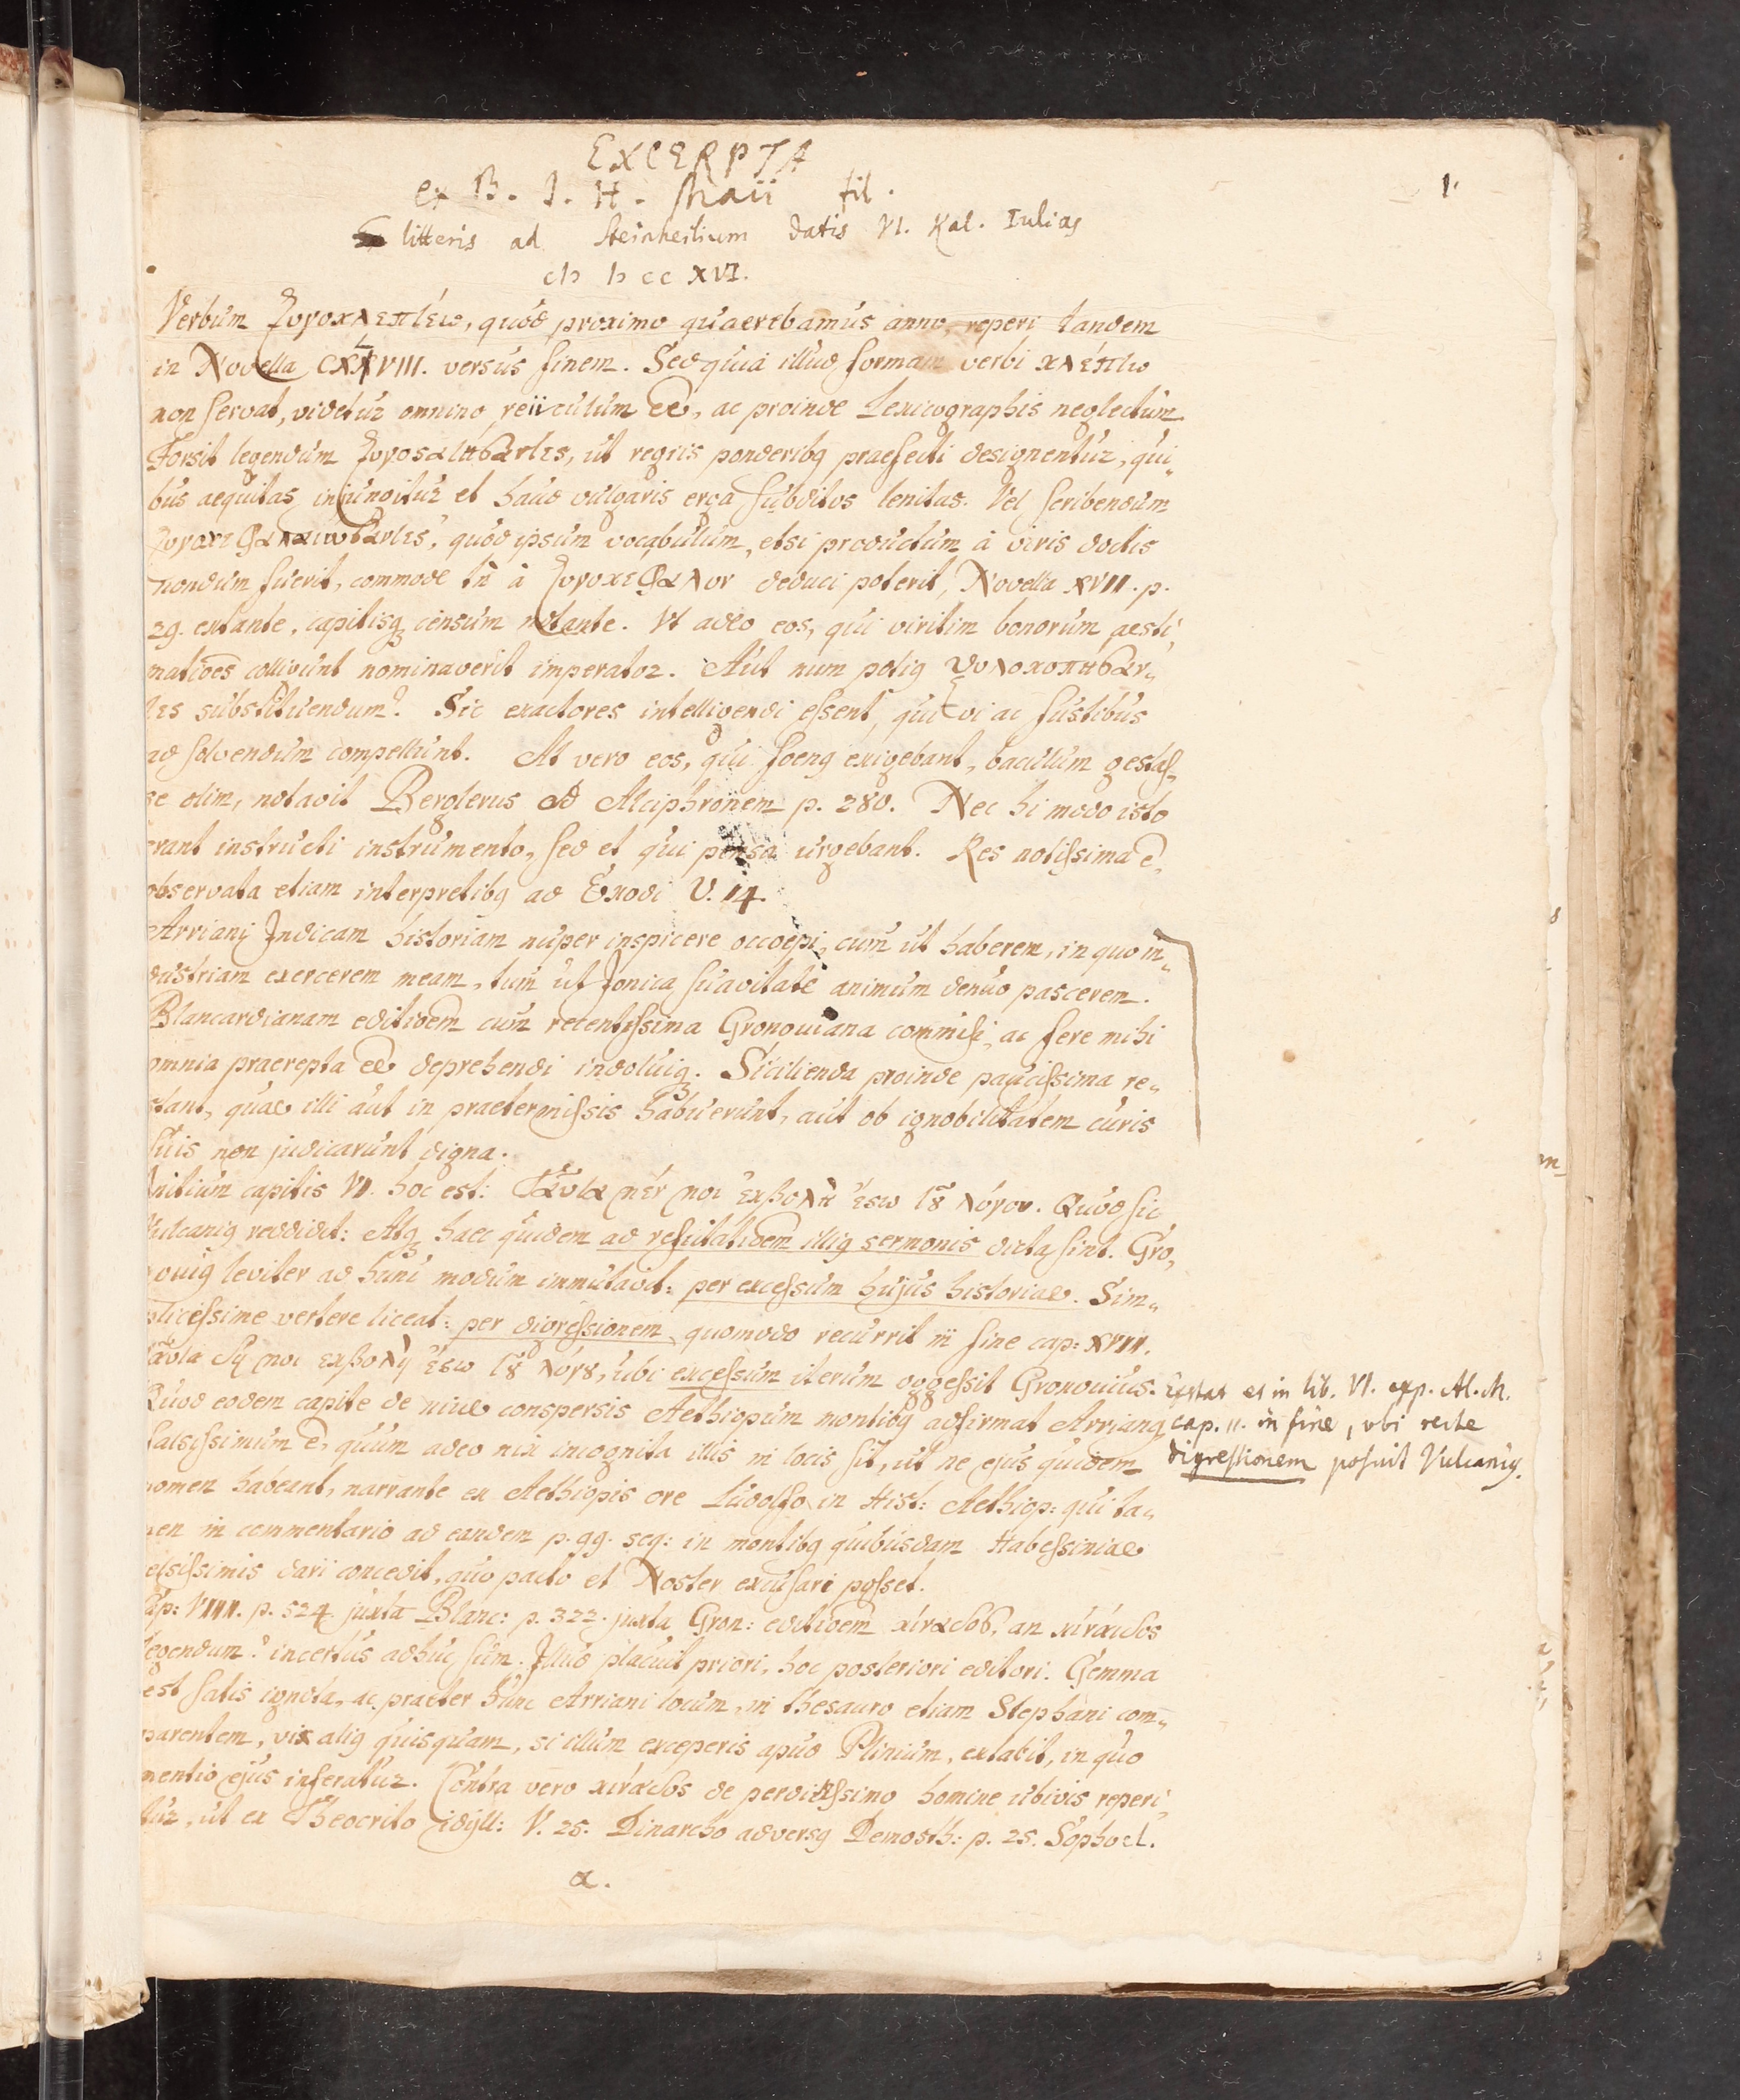 EXCERPTA
1.
ex B. I. H. Maii fil.
litteris ad Steinheilium datis VI. Kal. Iulias
cIↃ IↃ cc XVI.
Verbum ζυγοκλεπτέω, quod proximo quaerebamus anno, reperi tandem
in Novella CXXVIII. versus finem. Sed quia illud formam verbi κλέπτω
non servat, videtur omnino reiiculum eē, ac proinde Lexicographis neglectum.
Forsit legendum ut regiis ponderibq praefecti designentur, qui„
bus aequitas iniungitur et haud vulgaris erga subditos lenitas. Vel scribendum
quod ipsum vocabulum, etsi productum à viris doctis
nondum fuerit, commode tñ à ζυγοκεφάλον deduci poterit, Novella XVII. p.
29. extante, capitisq censum notante. Vt adeo eos, qui viritim bonorum aesti„
matioēs colligunt nominaverit imperator. Aut num potiq ξυλοκοπήσαν„
τες substituendum? Sic exactores intelligendi essent, qui vi ac fustibus
ad solvendum compellunt. At vero eos, qui foenq exigebant, baculum gestas„
se olim, notavit Berglerus ad Alciphronem p. 280. Nec hi modo isto
erant instructi instrumento, sed et qui pensa urgebant. Res notissima ē,
observata etiam interpretibq ad Exodi V. 14.
Arrianij Indicam historiam nuper inspicere occoepi, cum ut haberem, in quo in„
dustriam exercerem meam, tum ut Ionica suavitate animum denuo pascerem.
Blancardianam editioēm cum recentissima Gronouiana commisi, ac fere mihi
omnia praerepta eē deprehendi indoluiq. Sicilienda proinde paucissima re„
stant, quae illi aut in praetermissis habuerunt, aut ob ignobilitatem curis
suis non judicarunt digna.
Initium capitis VI. hoc est: Ταῦτα μέν μοι ἐκβολὴ ἔστω τȣ̃ λόγου. Quod sic
Vulcaniq reddidit: Atq haec quidem ad refutatioēm illiq sermonis dicta sint. Gro„
nouiq leviter ad hunc modum immutavit: per excessum hujus historiae. Sim„
plicissime vertere liceat: per digressionem, quomodo recurrit in fine cap: XVII.
ταῦτα δή μοι ἐκβολὴ ἔστω τȣ̃ λόγȣ, ubi excessum iterum oggessit Gronouius.
Quod eodem capite de nive conspersis Aethiopum montibq adfirmat Arrianq
falsissimum ē, quum adeo nix incognita illis in locis sit, ut ne ejus quidem
nomen habeant, narrante ex Aethiopis ore Ludolfo in Hist: Aethiop: qui ta„
men in commentario ad eandem p. 99. seq: in montibq quibusdam Habessiniae
elsissimis dari concedit, quo pacto et Noster excusari posset.
Cap: VIII. p. 524. juxta Blanc: p. 322. juxta Gron: editioēm κίναδος, an κίναιδος
legendum? incertus adhuc sum. Illud placuit priori, hoc posteriori editori. Gemma
est satis ignota, ac praeter hunc Arriani locum, in thesauro etiam Stephani com„
parentem, vix aliq quisquam, si illum exceperis apud Plinium, extabit, in quo
mentio ejus inferatur. Contra vero κίναδος de perditissimo homine ubivis reperi„
tur, ut ex Theocrito idyll: V. 25. Dinarcho adversq Demosth: p. 25. Sophocl.
a.
Exstat et in lib. VI. exp. Al. M.
cap. 11. in fine, vbi recte
digressionem posuit Vulcaniq.